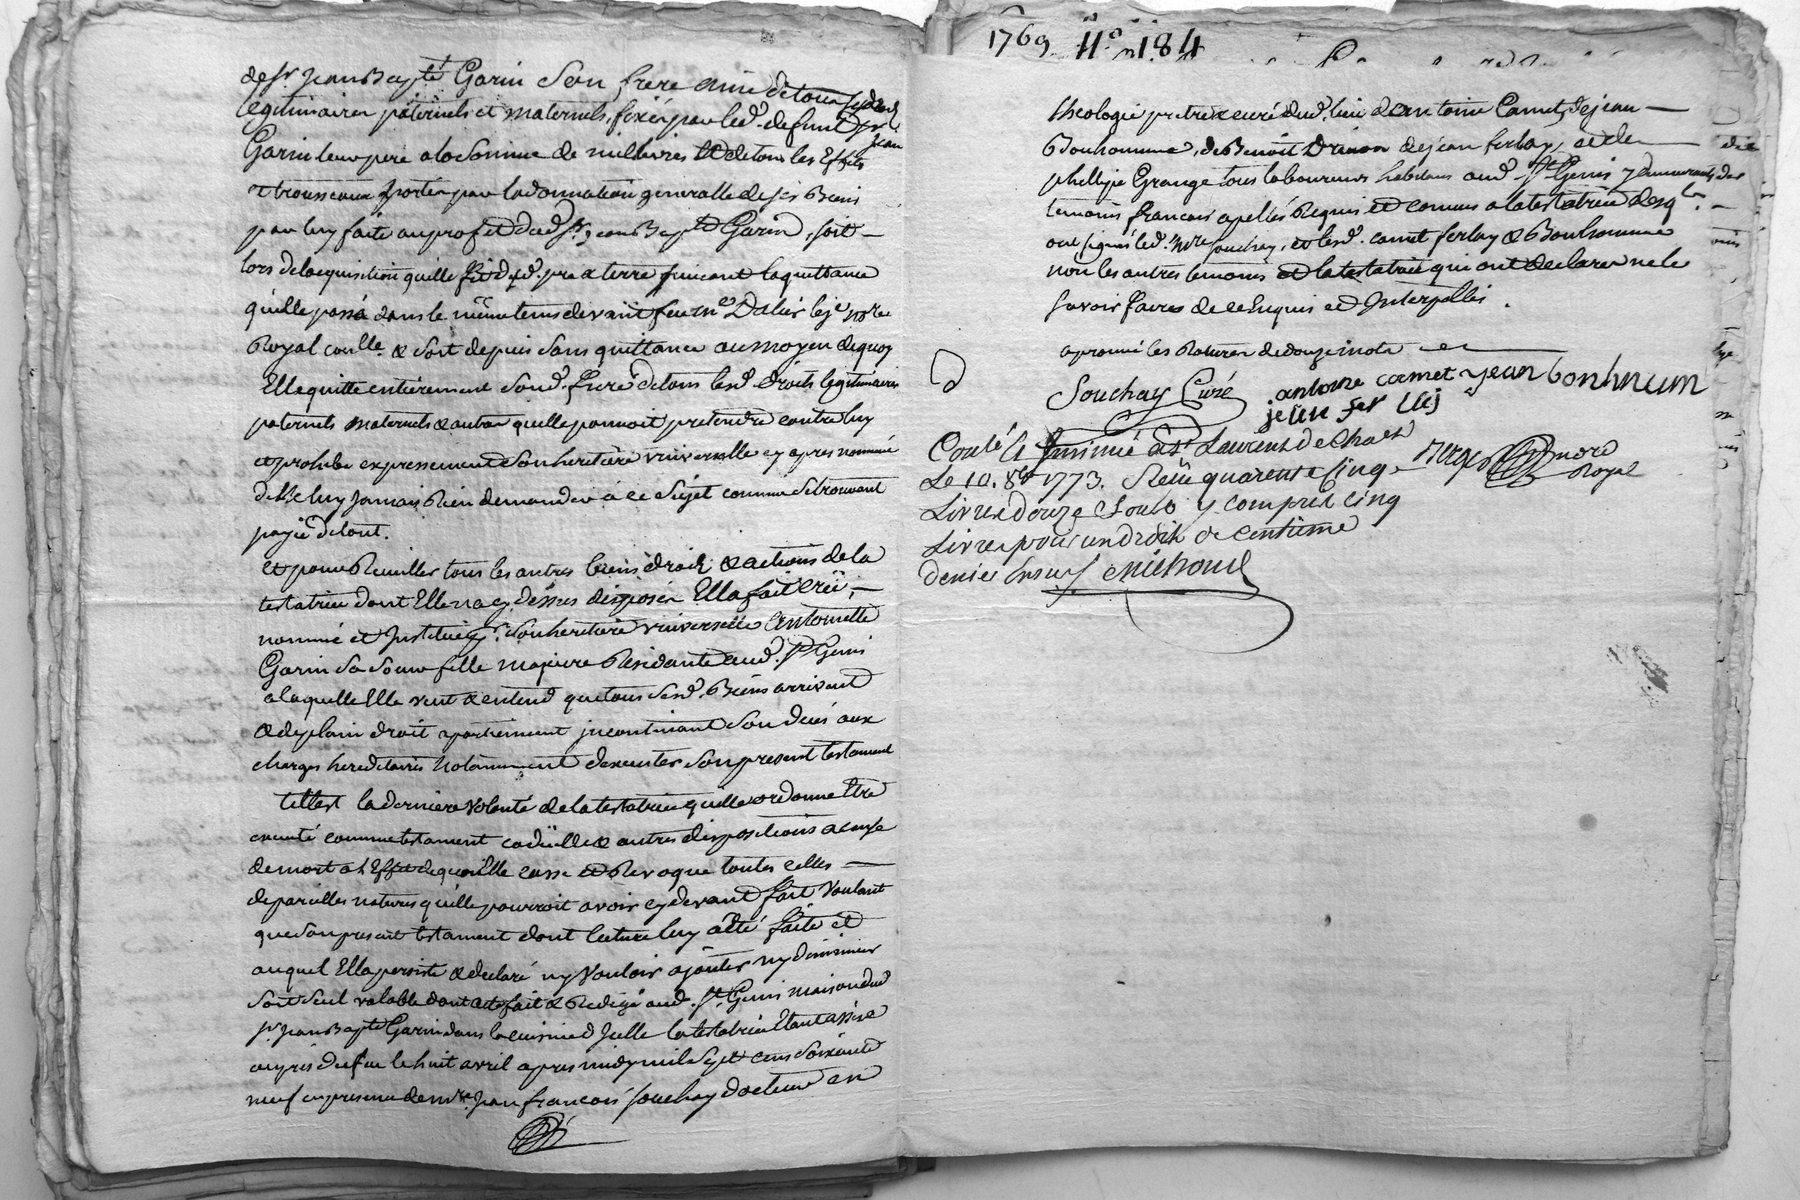 de sr. jean Bapte Garin son frere ainé de tous ses droits
legitimaires paternels et maternels, fixés par led. defunt sr. jean
Garin leur pere a la somme de mil livres et de tous les Effets
& trousseaux portés par la donnation generalle de ses Biens
par luy faite au profit dud. sr. jean Bapte Garin, soit
lors de l'acquisition quelle fit dud. pre & terre suivant la quittance
quelle passa dans le même tems devant feu me Dalier le je nore
Royal soit depuis sans quittance au moyen de quoy
Elle quitte entièrement sond. frere de tous lesd. droits legitimaires
paternels maternels & autres quelle pourroit pretendre contre luy
et prohibe expressement a son heritière universelle cy apres nommée
de luy jamais Rien demander à ce sujet comme se trouvant
payée de tout.
Et pour Recuillir tous les autres biens droits & actions de la
testatrice dont Elle na cy dessus disposés Ella fait créé,
nommé et Institué pr. son heritiere universelle Antoinette
Garin sa soeur fille majeure Residante aud. St Genis
a laquelle Elle veut & entend que tous sesd. Biens arrivent
& de plain droit apartiennent incontinant son decés aux
charges hereditaires notamment dexecuter son present testament
telle est la derniere volonté de la testatrice quelle ordonne Etre
executé comme testament codicille & autres dispositions a cause
de mort a l'Effet de quoi Elle casse et Revoque toutes celles
de pareilles natures quelle pourroit avoir cy devant fait voulant
que son present testament dont lecture luy a été faite et
auquel Ella persisté & declaré ny vouloir ajouter ny diminuer
soit seul valable dont acte fait & Redigé aud. St Genis maison dud.
sr. jean Bapte Garin dans la cuisine d'Icelle la testatrice Etant assise
auprés du feu le huit avril apres midy mil sept cens soixante
neuf en presence de mre jean françois souchay docteur en
1769 n. 184
theologie pretre & curé dud. lieu d'antoine Camet, de jean
Bonhomme, de Benoit de jean ferlay, et de
phelippe Grange tous laboureurs habitans aud. St Genis y demeurants
temoins françois apellés Requis et connus a la testatrice desqls.
ont signés led. mre souchay, et lesd. camet ferlay & Bonhomme
non les autres temoins et la testatrice qui ont declarés ne le
savoir faire de ce Requis et Interpellés.
aprouvé les Ratures de douze mots
Souchay Curé antoine camet jean bonhnum
jean fer laj
Conté & Insinué a St Laurent de Cha
Le 10. 8bre 1773. Reçu quarante Cinq
Livres douze Souls y compris Cinq
Livres pour un droit de Centieme
denier nore
Royal